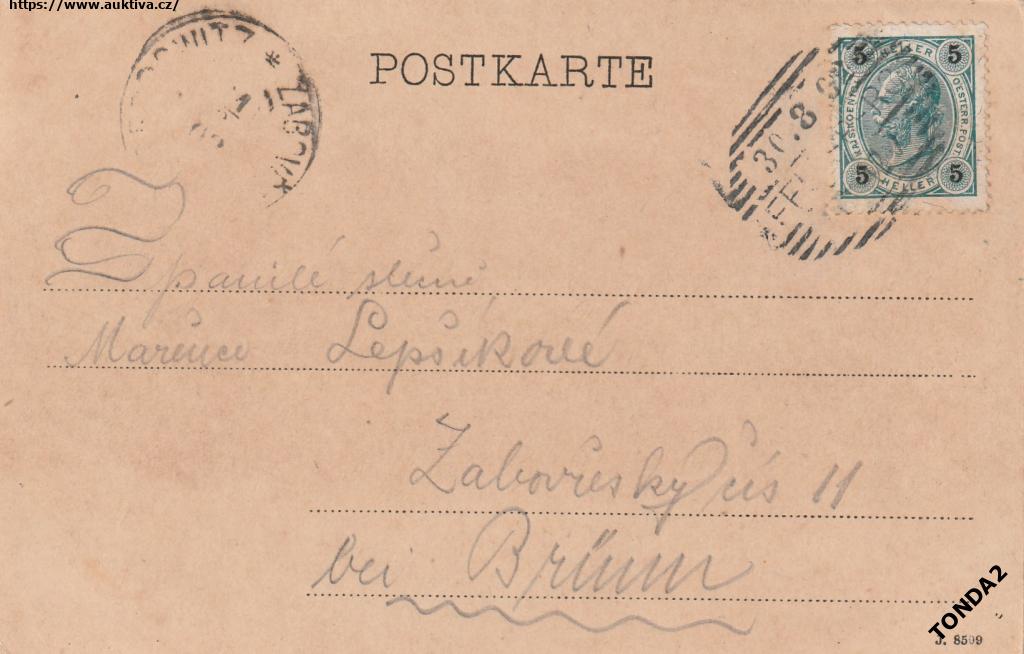 https://www.auktiva.cz/
POSTKARTE
OWITZ * ZABOVŘ
30.8
5 HELLER 5
OESTERR. POST
5 HELLER 5
Spanilé slečně
Marence Lepšíkové
Žabovřesky čís 11
bei Brünn
TONDA2
J. 8509